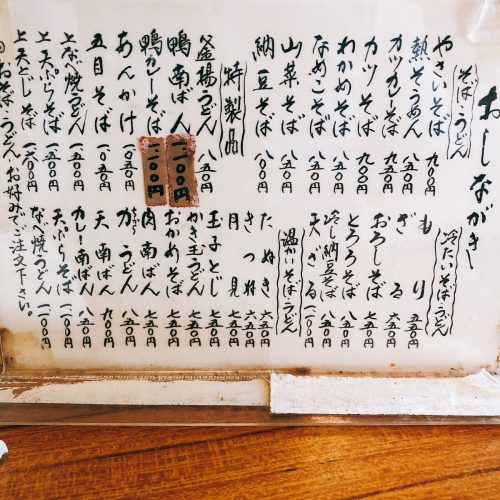 おしながき
そば・うどん
やさいそば 九〇〇円
熱そうめん 八五〇円
カツカレーそば 九〇〇円
カツそば 九〇〇円
わかめそば 八五〇円
なめこそば 八五〇円
山菜そば 八五〇円
納豆そば 八〇〇円
特製品
釜揚うどん 八五〇円
鴨南ばん 一、一〇〇円
鴨カレーそば 一、一〇〇円
あんかけ 一〇五〇円
五目そば 一〇五〇円
上なべ焼うどん
上天ぷらそば
上天とじそば
冷たいそば・うどん
もり
ざる
おろしそば 七五〇円
とろろそば 八五〇円
冷し納豆そば 八五〇円
天ざる 一二〇〇円
温かいそば・うどん
たぬき 六五〇円
きつね 六五〇円
月見
玉子とじ 七五〇円
かき玉うどん 七五〇円
おかめそば 七五〇円
肉南ばん 七五〇円
力うどん 八五〇円
天南ばん 九〇〇円
カレー南ばん 八五〇円
天ぷらそば 一一〇〇円
なべ焼うどん 一一〇〇円
◎おそば・うどん、お好みでご注文下さい。